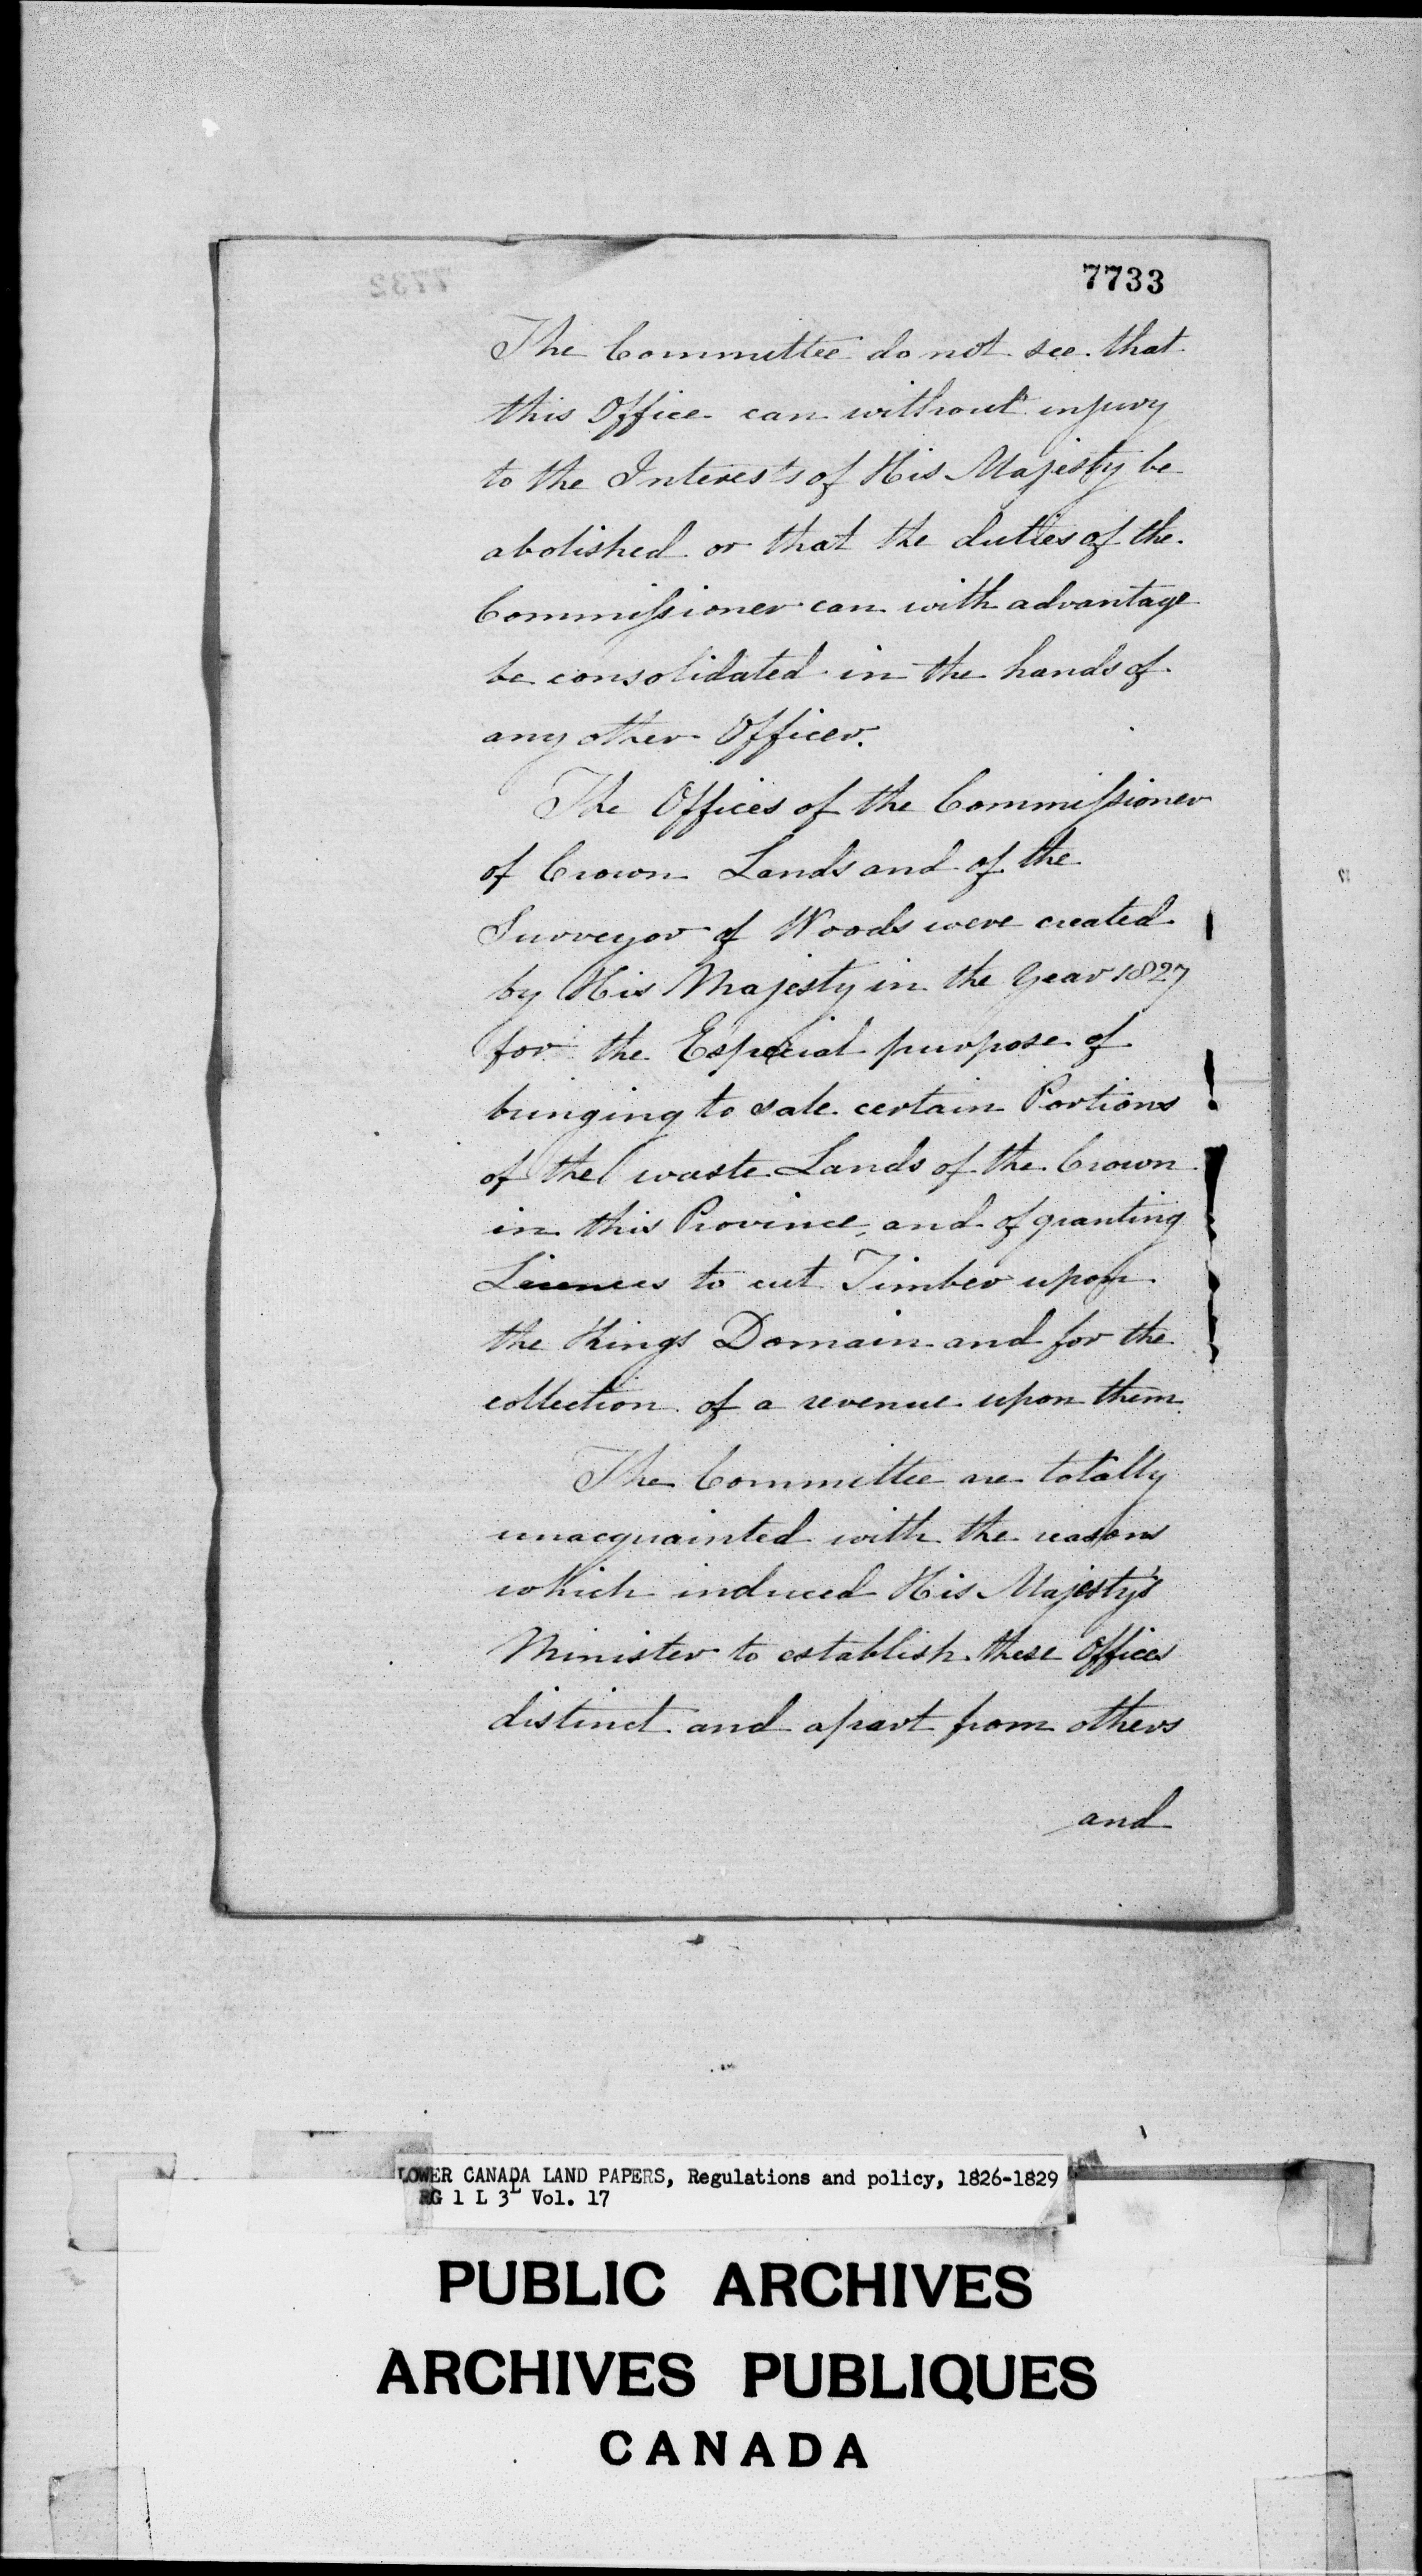 7733
The Committee do not see that
this Office can without injury
to the Interests of His Majesty be
abolished or that the duties of the
Commissioner can with advantage
be consolidated in the hands of
any other Officer.
The Offices of the Commissioner
of Crown Lands and of the
Surveyor of Woods were created
by His Majesty in the Year 1827
for the Especial purpose of
bringing to sale certain Portions
of the waste Lands of the Crown
in this Province, and of granting
Licences to cut Timber upon
the Kings Domain and for the
collection of a revenue upon them.
The Committee are totally
unacquainted with the reasons
which induced His Majesty's
Minister to establish these Offices
distinct and apart from others
and
LOWER CANADA LAND PAPERS, Regulations and policy, 1826-1829
RG 1 L 3L Vol. 17
PUBLIC ARCHIVES
ARCHIVES PUBLIQUES
CANADA